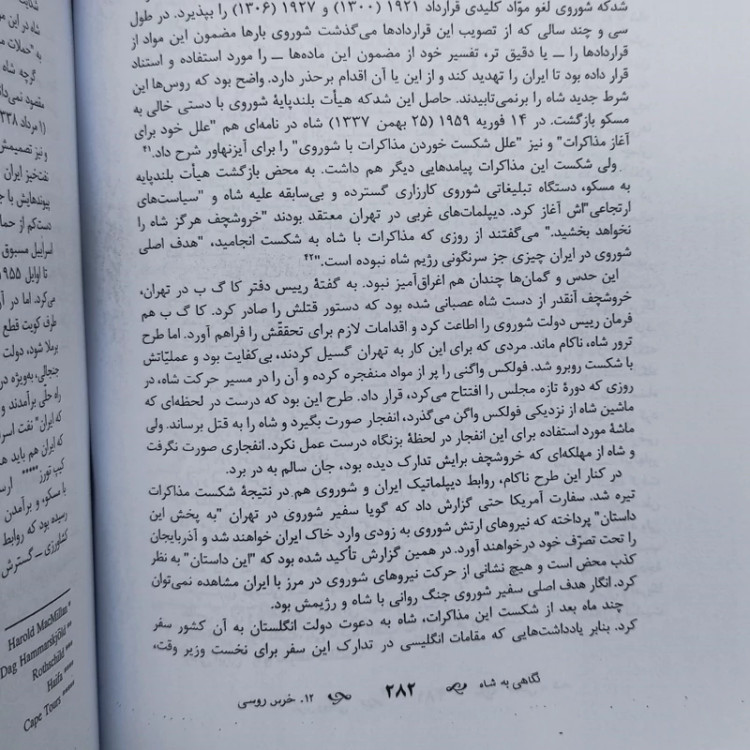 شدکه شوروی لغو موّاد کلیدی قرارداد ۱۹۲۱ (۱۳۰۰) و ۱۹۲۷ (۱۳۰۶) را بپذیرد. در طول
سی و چند سالی که از تصویب این قراردادها می‌گذشت شوروی بارها مضمون این مواد از
قراردادها را ــ یا دقیق تر، تفسیر خود از مضمون این ماده‌ها ــ را مورد استفاده و استناد
قرار داده بود تا ایران را تهدید کند و از این یا آن اقدام برحذر دارد. واضح بود که روس‌ها این
شرط جدید شاه را برنمی‌تابیدند. حاصل این شدکه هیأت بلندپایهٔ شوروی با دستی خالی به
مسکو بازگشت. در ۱۴ فوریه ۱۹۵۹ (۲۵ بهمن ۱۳۳۷) شاه در نامه‌ای هم "علل خود برای
آغاز مذاکرات" و نیز "علل شکست خوردن مذاکرات با شوروی" را برای آیزنهاور شرح داد.۴۱
ولی شکست این مذاکرات پیامدهایی دیگر هم داشت. به محض بازگشت هیأت بلندپایه
به مسکو، دستگاه تبلیغاتی شوروی کارزاری گسترده و بی‌سابقه علیه شاه و "سیاست‌های
ارتجاعی"اش آغاز کرد. دیپلمات‌های غربی در تهران معتقد بودند "خروشچف هرگز شاه را
نخواهد بخشید." می‌گفتند از روزی که مذاکرات با شاه به شکست انجامید، "هدف اصلی
شوروی در ایران چیزی جز سرنگونی رژیم شاه نبوده است."۴۲
این حدس و گمان‌ها چندان هم اغراق‌آمیز نبود. به گفتهٔ رییس دفتر کا گ ب در تهران،
خروشچف آنقدر از دست شاه عصبانی شده بود که دستور قتلش را صادر کرد. کا گ ب هم
فرمان رییس دولت شوروی را اطاعت کرد و اقدامات لازم برای تحققّش را فراهم آورد. اما طرح
ترور شاه، ناکام ماند. مردی که برای این کار به تهران گسیل کردند، بی‌کفایت بود و عملیّاتش
با شکست روبرو شد. فولکس واگنی را پر از مواد منفجره کرده و آن را در مسیر حرکت شاه، در
روزی که دورهٔ تازه مجلس را افتتاح می‌کرد، قرار داد. طرح این بود که درست در لحظه‌ای که
ماشین شاه از نزدیکی فولکس واگن می‌گذرد، انفجار صورت بگیرد و شاه را به قتل برساند. ولی
ماشهٔ مورد استفاده برای این انفجار در لحظهٔ بزنگاه درست عمل نکرد. انفجاری صورت نگرفت
و شاه از مهلکه‌ای که خروشچف برایش تدارک دیده بود، جان سالم به در برد.
در کنار این طرح ناکام، روابط دیپلماتیک ایران و شوروی هم در نتیجهٔ شکست مذاکرات
تیره شد. سفارت آمریکا حتی گزارش داد که گویا سفیر شوروی در تهران "به پخش این
داستان" پرداخته که نیروهای ارتش شوروی به زودی وارد خاک ایران خواهند شد و آذربایجان
را تحت تصرّف خود درخواهند آورد. در همین گزارش تأکید شده بود که "این داستان" به نظر
کذب محض است و هیچ نشانی از حرکت نیروهای شوروی در مرز با ایران مشاهده نمی‌توان
کرد. انگار هدف اصلی سفیر شوروی جنگ روانی با شاه و رژیمش بود.
چند ماه بعد از شکست این مذاکرات، شاه به دعوت دولت انگلستان به آن کشور سفر
کرد. بنابر یادداشت‌هایی که مقامات انگلیسی در تدارک این سفر برای نخست وزیر وقت،
نگاهی به شاه ۲۸۲ ۱۲. خرس روسی
شاه در این
به "حملات
گرچه شاه
مقصود نمی‌دا
(۱ مرداد ۳۳۸
و نیز تصمیمش
نفت‌خیز ایران
پیوندهایش با ج
دست‌کم از حما
اسراییل مسبوق
تا اوایل ۱۹۵۵
می‌کرد. اما در آ
طرف کویت قطع
برملا شود، دولت
جنجالی، به‌ویژه در
راه حلی برآمدند و
که ایران" نفت اسر
که ایران هم باید هـ
کیپ تورز***** ارس
با مسکو، و برآمدن
رسیده بود که روابط
کشاورزی ــ گسترش
Harold MacMillan *
Dag Hammarskjöld **
Rothschild ***
Haifa ****
Cape Tours *****